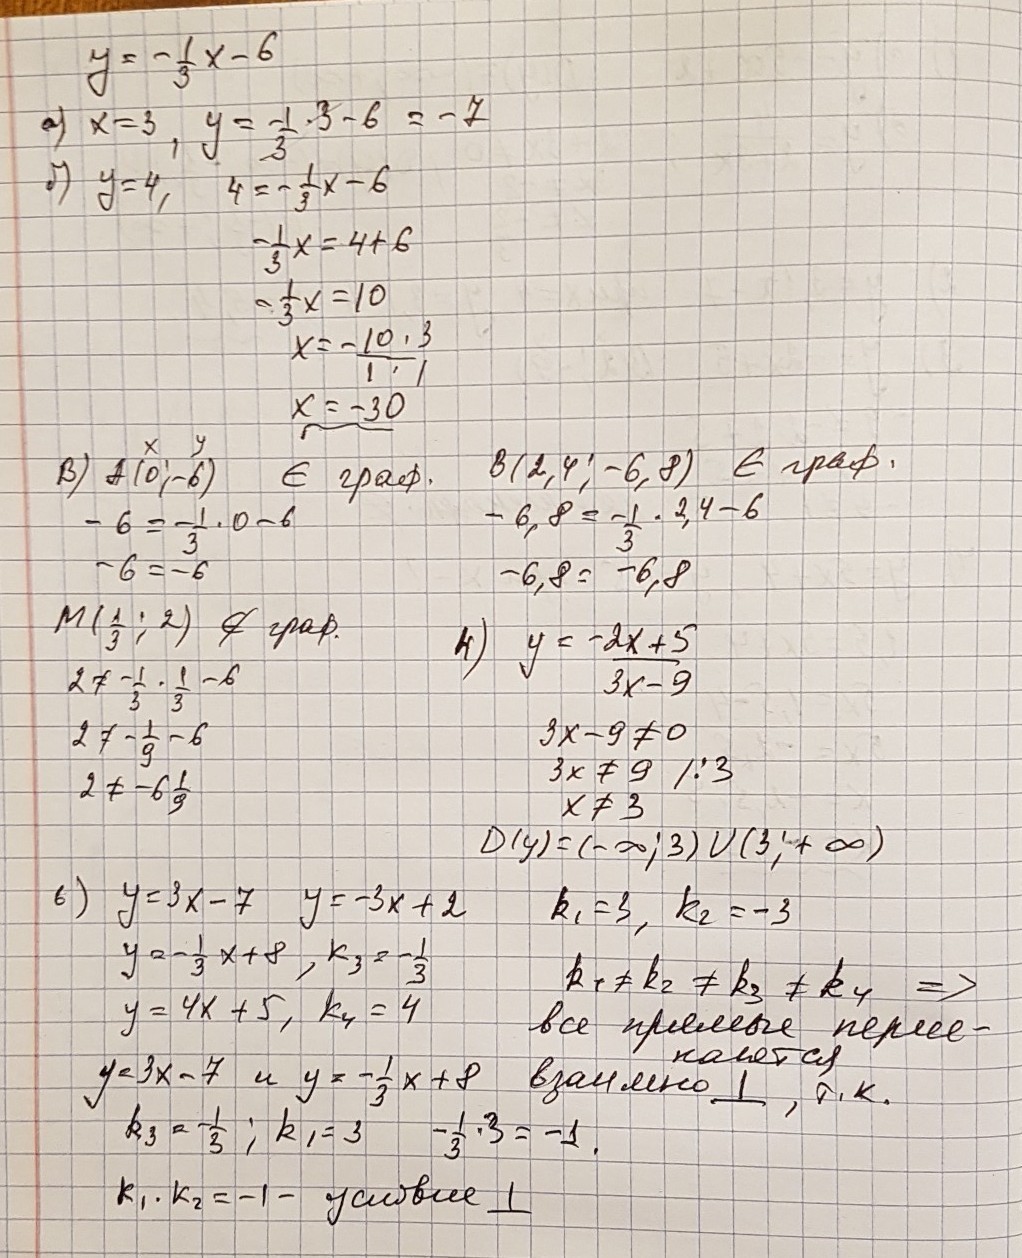 y = -1/3 x - 6
а) x = 3, y = -1/3 · 3 - 6 = -7
б) y = 4, 4 = -1/3 x - 6
-1/3 x = 4 + 6
-1/3 x = 10
x = - (10 · 3)/(1 · 1)
x = -30
x y
В) A(0; -6) ∈ граф.
-6 = -1/3 · 0 - 6
-6 = -6
B(2,4; -6,8) ∈ граф.
-6,8 = -1/3 · 2,4 - 6
-6,8 = -6,8
M(1/3; 2) ∉ граф.
2 ≠ -1/3 · 1/3 - 6
2 ≠ -1/9 - 6
2 ≠ -6 1/9
4) y = (-2x + 5)/(3x - 9)
3x - 9 ≠ 0
3x ≠ 9 /:3
x ≠ 3
D(y) = (-∞; 3) U (3; +∞)
6) y = 3x - 7 y = -3x + 2 k₁ = 3, k₂ = -3
y = -1/3 x + 8, k₃ = -1/3
y = 4x + 5, k₄ = 4
k₁ ≠ k₂ ≠ k₃ ≠ k₄ =>
все прямые пересе-
каются
y = 3x - 7 и y = -1/3 x + 8 взаимно ⊥, т.к.
k₃ = -1/3; k₁ = 3 -1/3 · 3 = -1.
k₁ · k₂ = -1 - условие ⊥